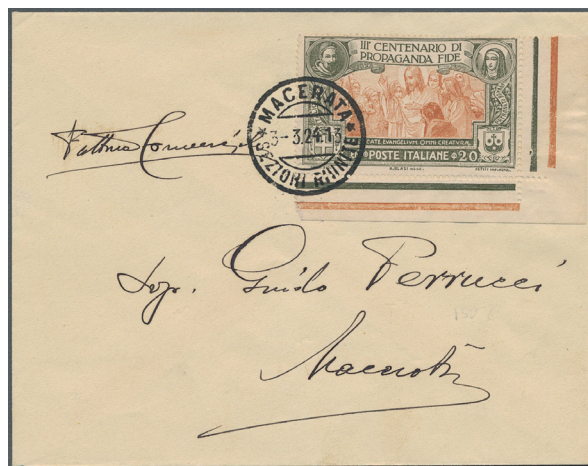 III CENTENARIO DI
PROPAGANDA FIDE
EVANGELIUM OMNI CREATURÆ
POSTE ITALIANE 20
MACERATA
3-3.24-13
SEZIONI RIUNITE
Fattura Commerciale
Guido Perrucci
Macerata